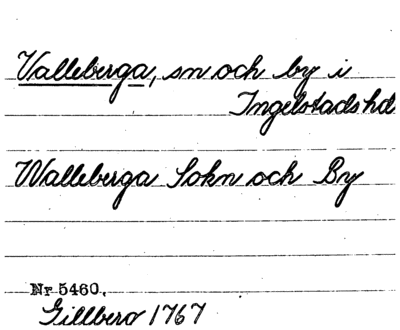 Valleberga, sn och by i
Ingelstads hd
Walleberga Sokn och By
Nr 5460.
Gillberg 1767